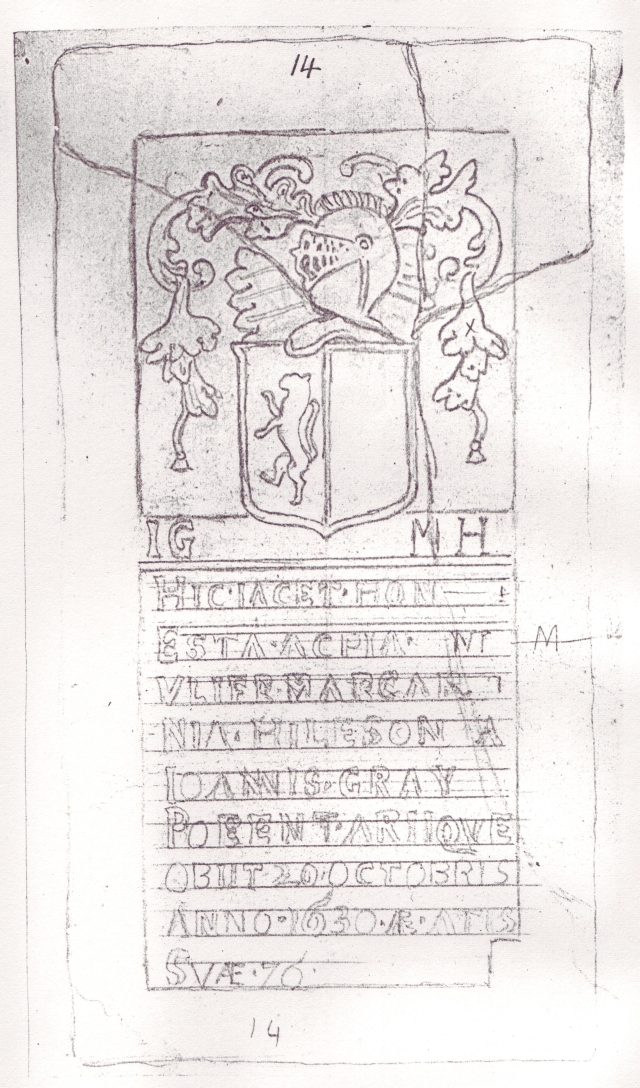 14
IG MH
HIC·IACET·HON
ESTA·ACPIA· M
VLIER·MARGAR
NIA·HILESON A
IOANNIS·GRAY
POEENT·ARIIQVE
OBIIT 20·OCTOBRIS
ANNO·1630·Æ·ATIS
SVÆ·76·
14